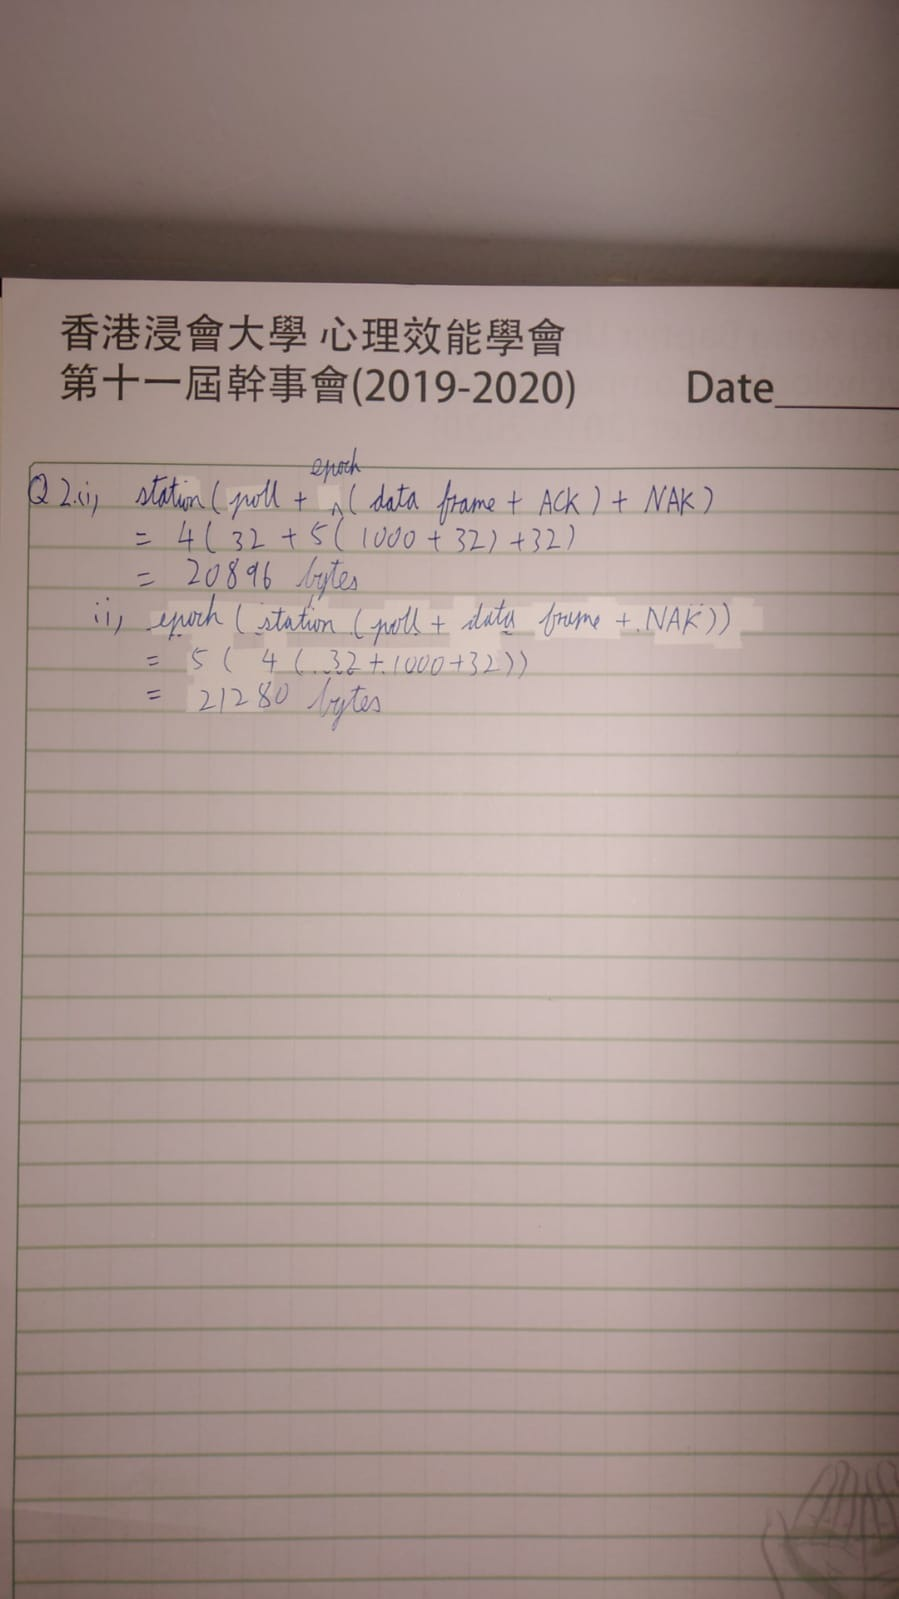 香港浸會大學 心理效能學會
第十一屆幹事會(2019-2020) Date
epoch
Q2.i, station ( poll + ( data frame + ACK ) + NAK )
= 4 ( 32 + 5 ( 1000 + 32 ) + 32 )
= 20896 bytes
ii, epoch ( station ( poll + data frame + NAK ) )
= 5 ( 4 ( 32 + 1000 + 32 ) )
= 21280 bytes